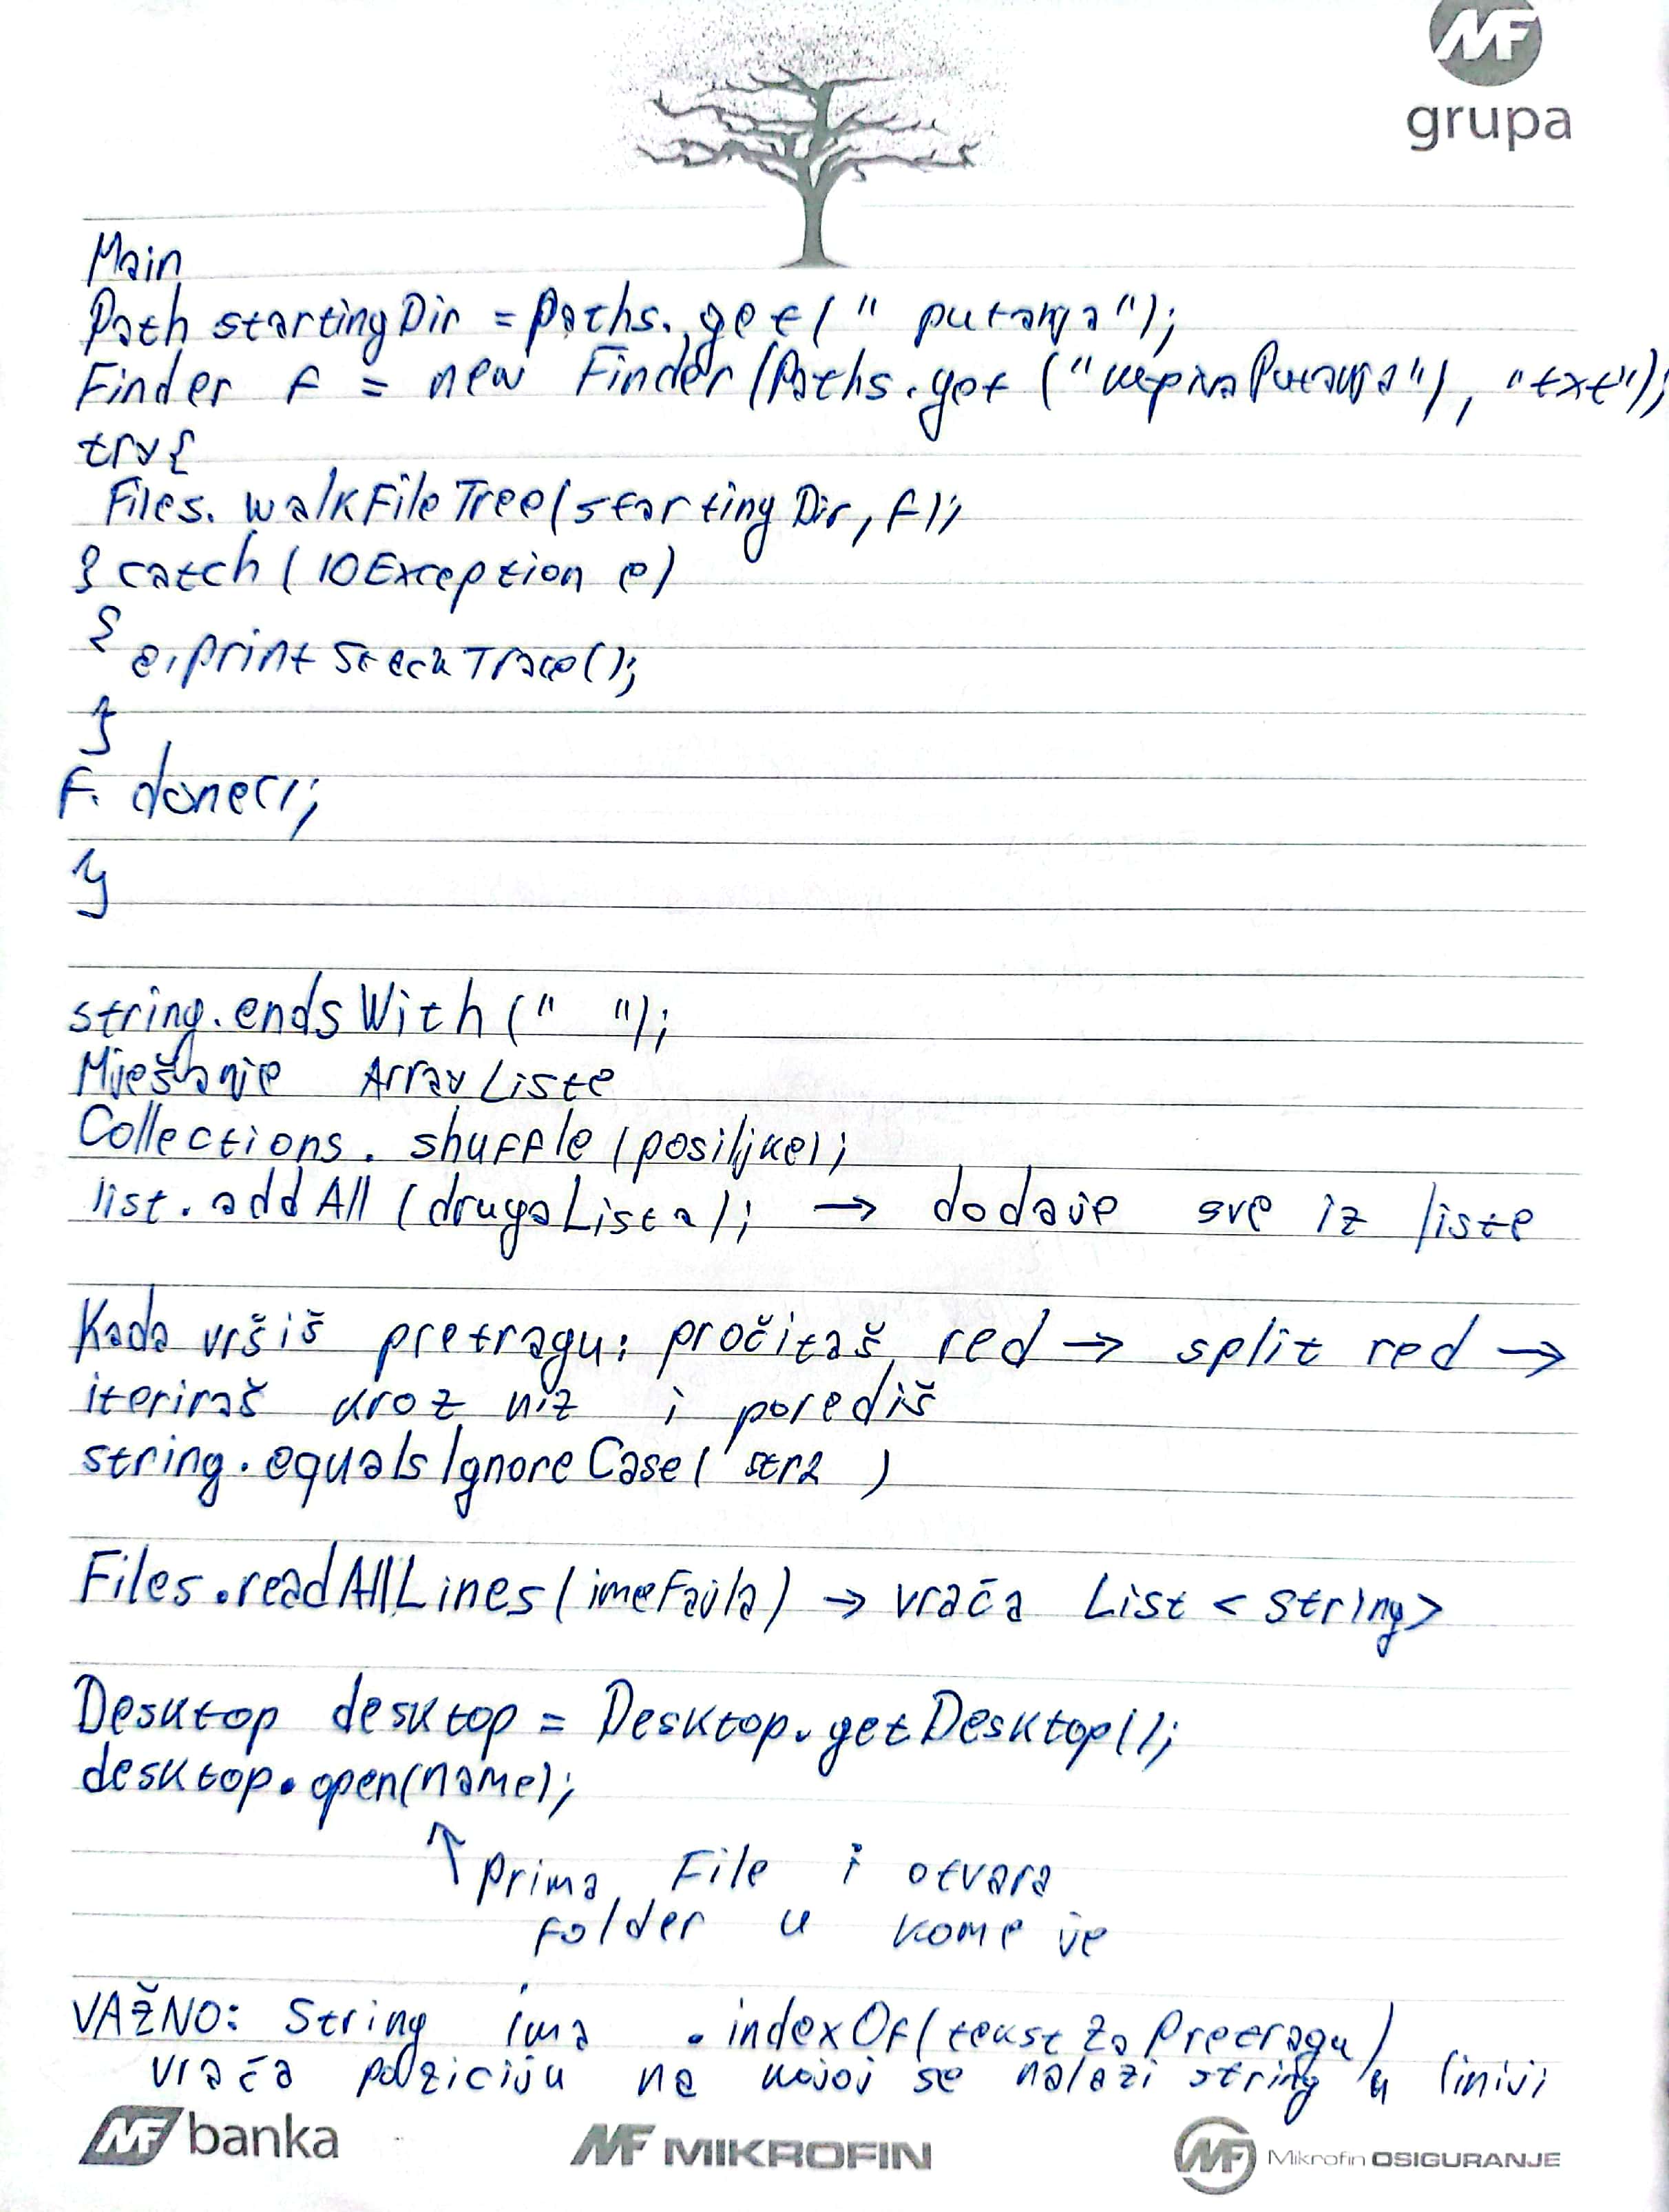 MF
grupa
Main
Path startingDir = Paths.get(" putanja");
Finder f = new Finder(Paths.get (" "), "txt");
try{
Files. walkFileTree(startingDir, f);
} catch ( IOException e)
{
e.printStackTrace();
}
f. done();
}
string.endsWith (" ");
Miješanje ArrayListe
Collections. shuffle (posiljke);
list.addAll (drugaLista); → dodaje sve iz liste
Kada vršiš pretragu: pročitaš red → split red →
iteriraš kroz niz i porediš
string.equalsIgnoreCase( str2 )
Files.readAllLines(imeFajla) → vraća List < string>
Desktop desktop = Desktop.getDesktop();
desktop.open(name);
↑ prima File i otvara
folder u kome je
VAŽNO: String ima .indexOf(tekst za Pretragu)
vraća poziciju na kojoj se nalazi string u liniji
MF banka MF MIKROFIN MF Mikrofin OSIGURANJE